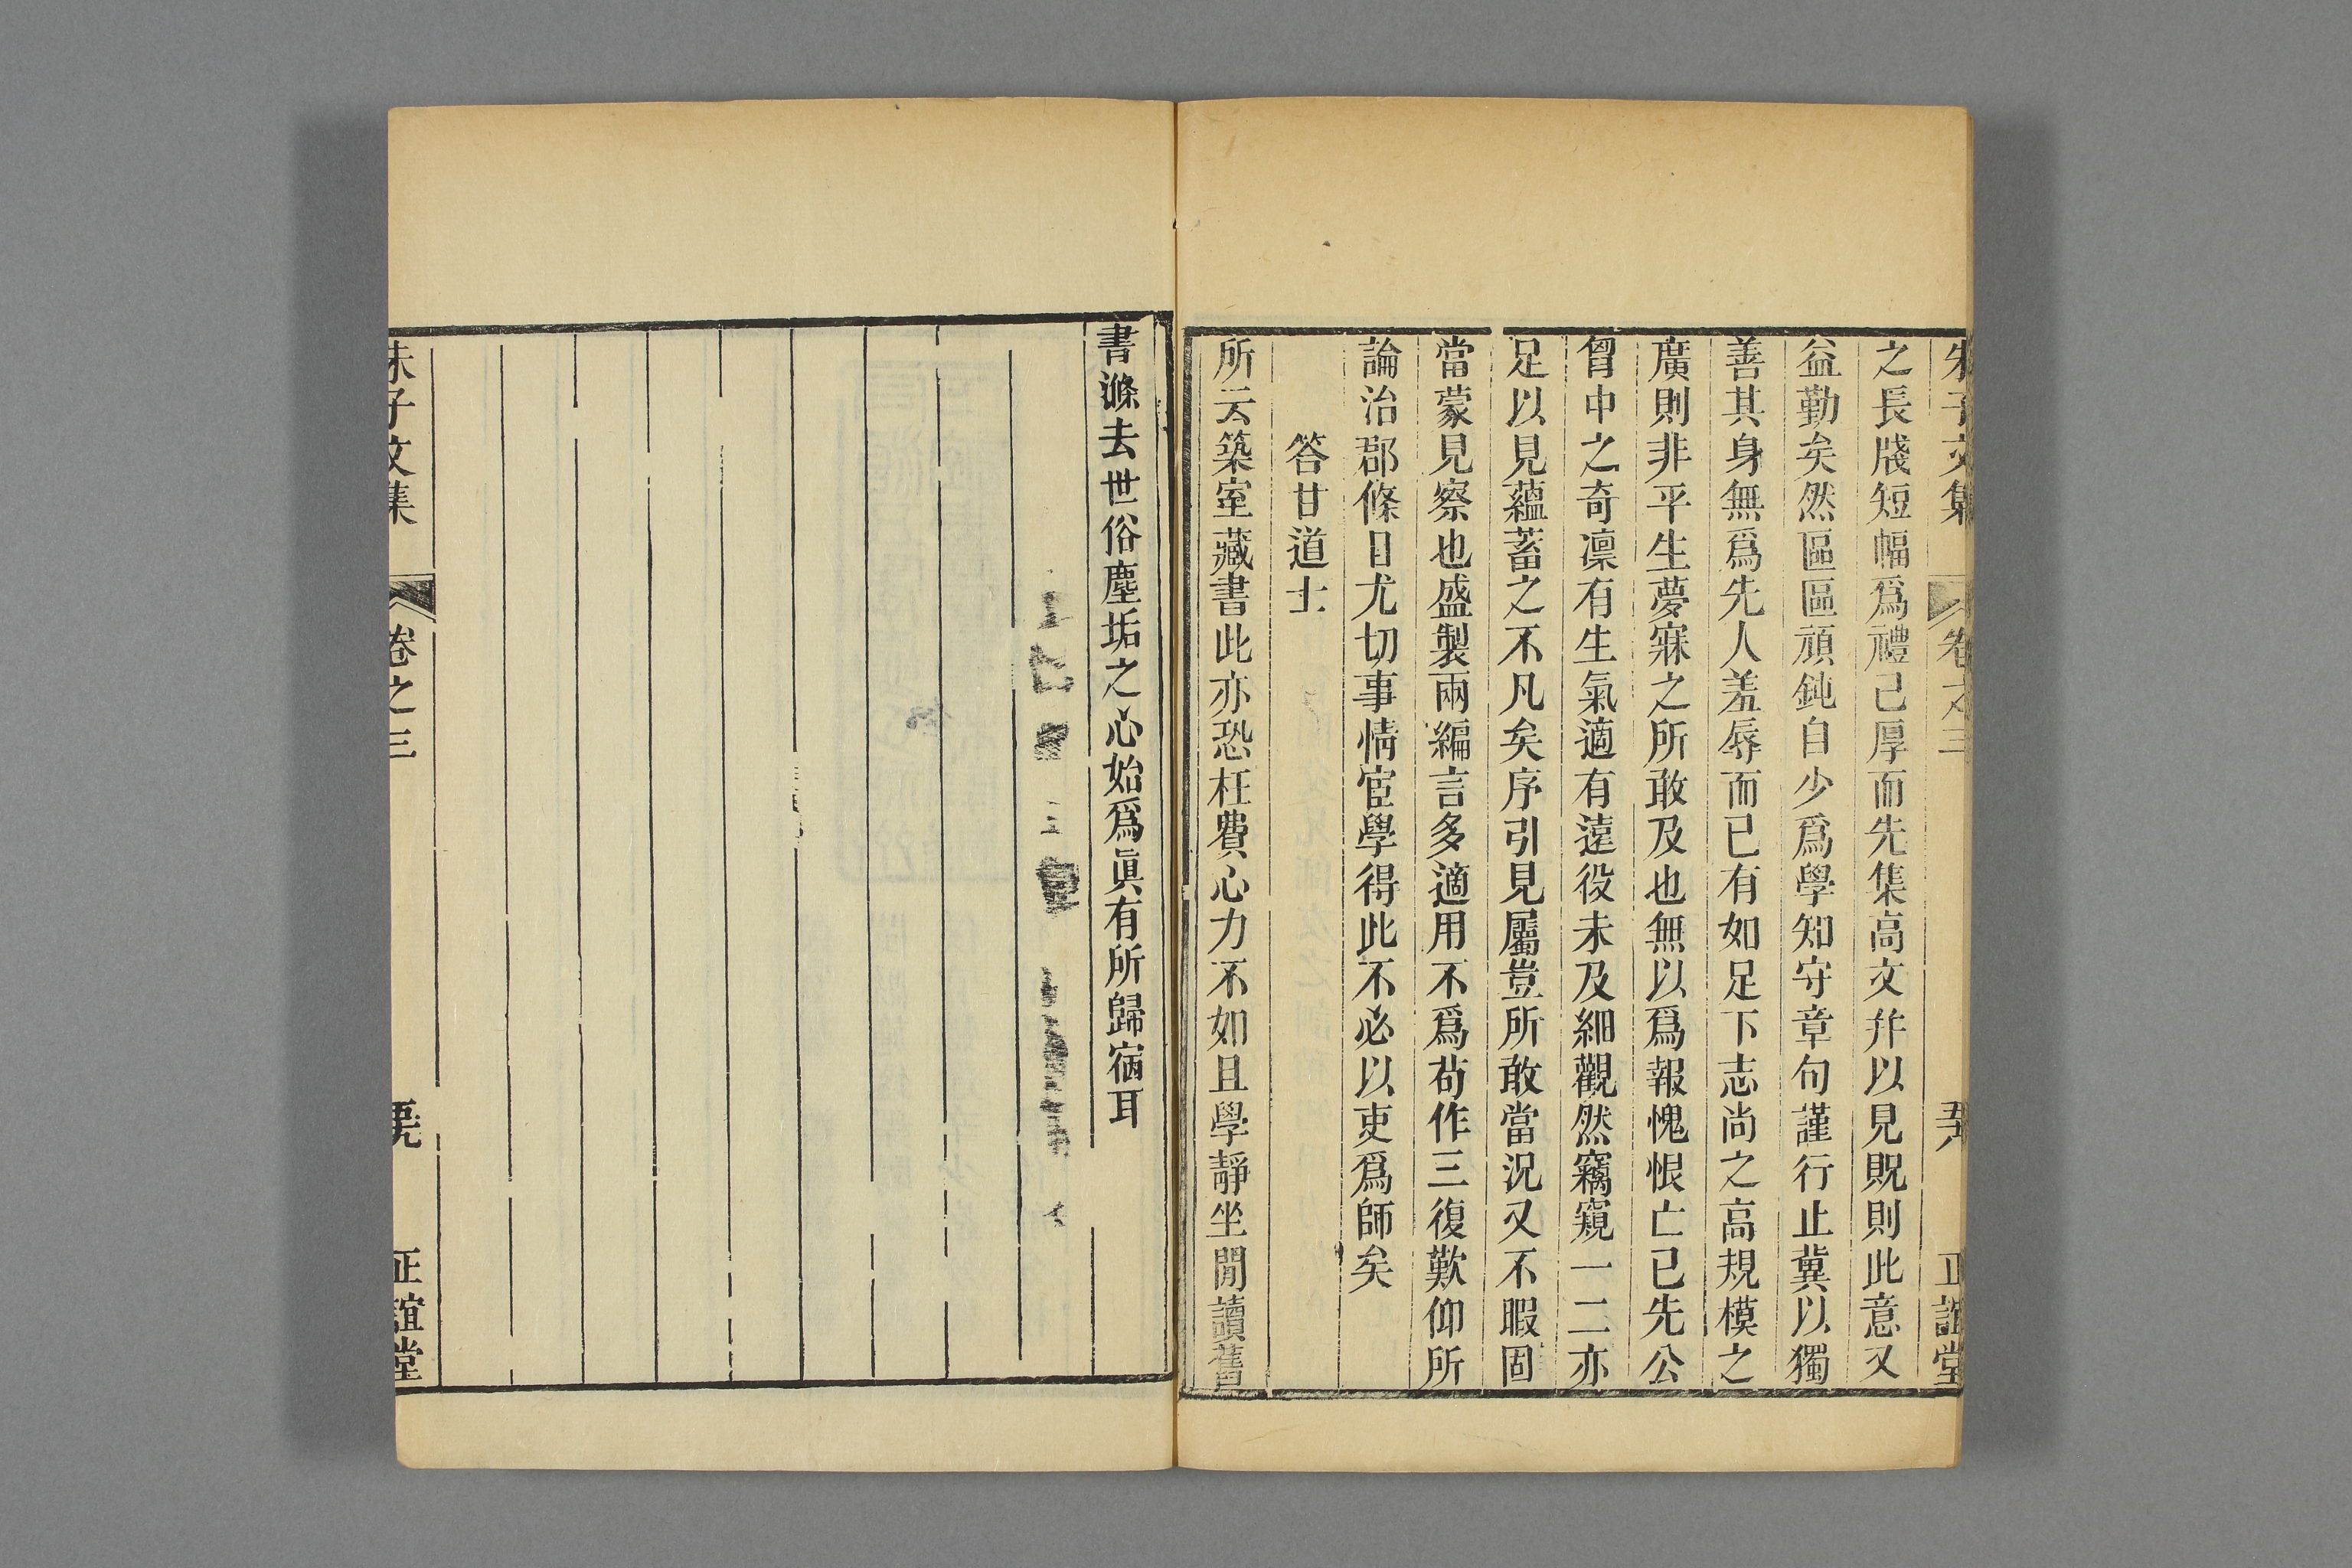 朱子文集 卷之三 正誼堂
之長牋短幅爲禮已厚而先集高文幷以見貺則此意又
益勤矣然區區頑鈍自少爲學知守章句謹行止冀以獨
善其身無爲先人羞辱而已有如足下志尚之高規模之
廣則非平生夢寐之所敢及也無以爲報愧恨亡已先公
胷中之奇凜有生氣適有遠役未及細觀然竊窺一二亦
足以見蘊蓄之不凡矣序引見屬豈所敢當況又不暇固
當蒙見察也盛製兩編言多適用不爲苟作三復歎仰所
論治郡條目尤切事情宦學得此不必以吏爲師矣
答甘道士
所云築室藏書此亦恐枉費心力不如且學靜坐閒讀舊
書滌去世俗塵垢之心始爲眞有所歸宿耳
朱子文集 卷之三 正誼堂